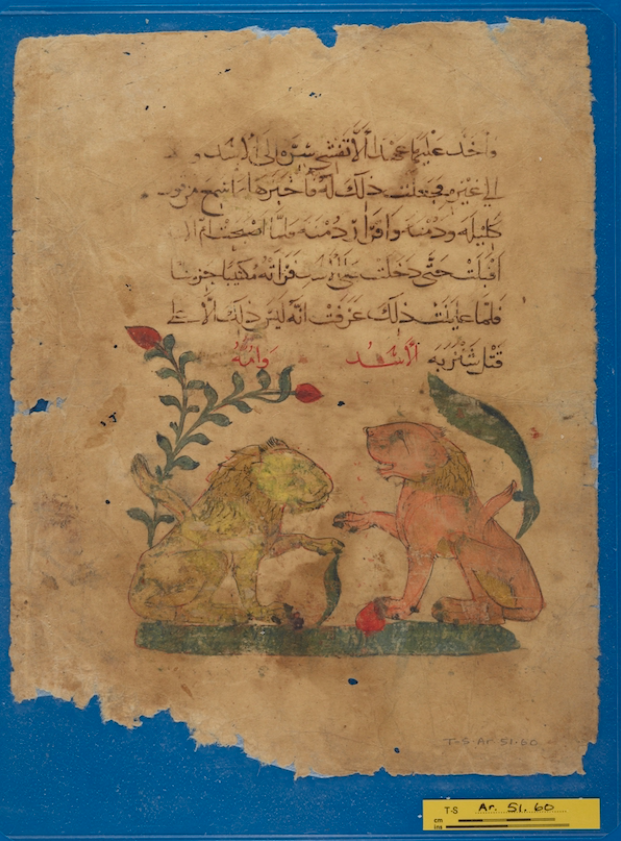 واخذ عليها عهدا ألا تفشي سره الى الاسد و
الى غيره فجعلت ذلك له فاخبرها بما سمع من
كليله ودمنه واقرار دمنه فلما اصبحت ام
اقبلت حتى دخلت على الاسد فراته مكتيبا حزينا
فلما عاينت ذلك عرفت انه ليس ذلك الا على
قتل شنزبه الاسد وامه
T-S Ar. 51.60
T-S Ar. 51. 60
cm
ins